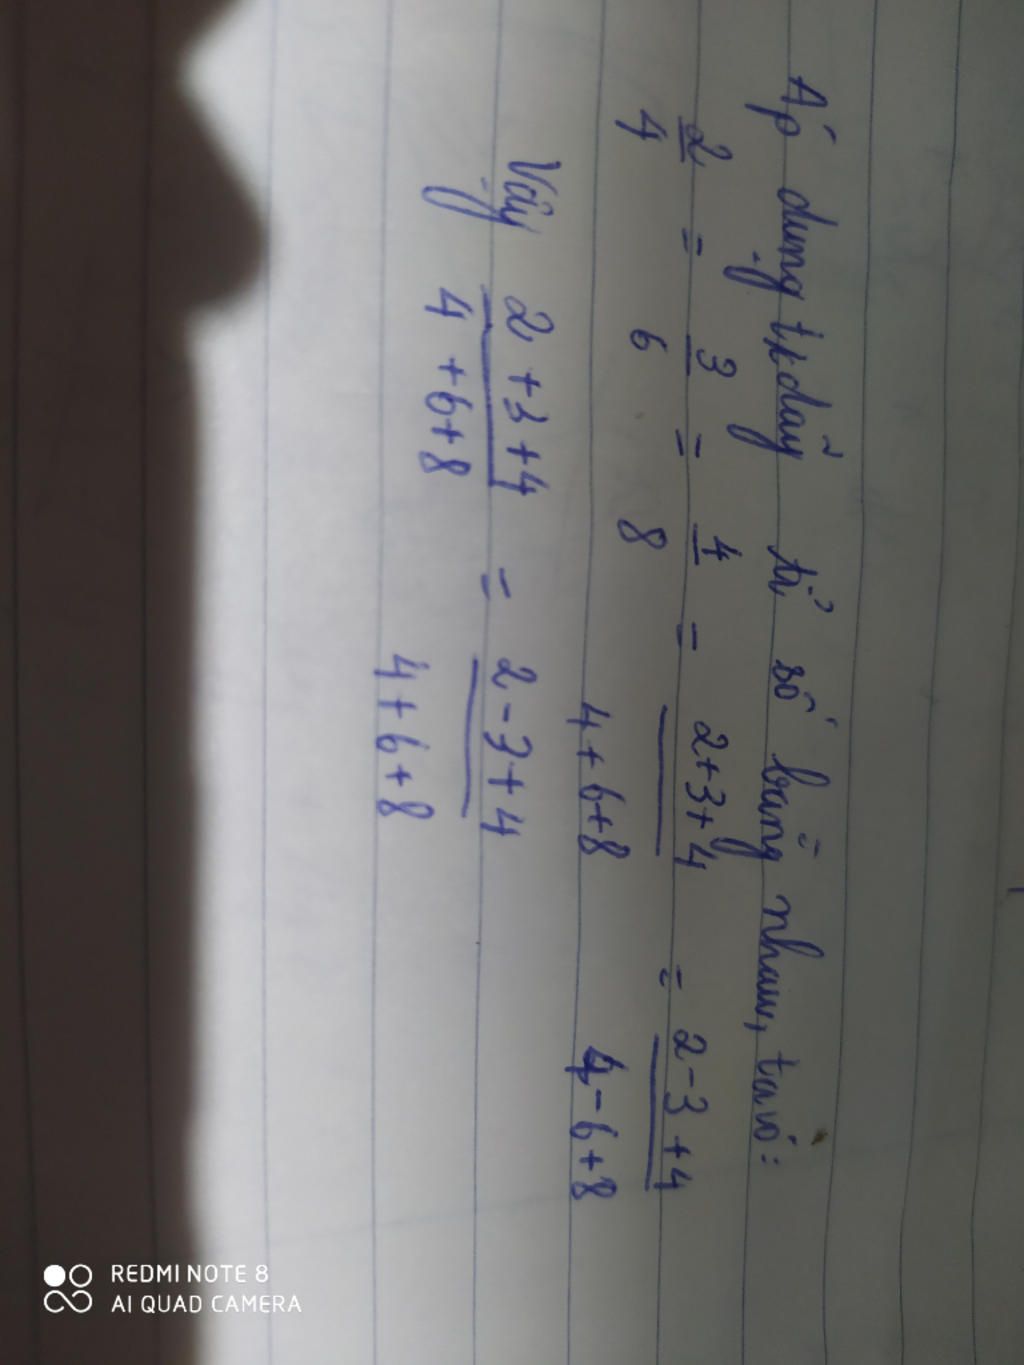 Áp dụng t/c dãy tỉ số bằng nhau, ta có:
2/4 = 3/6 = 4/8 = 2+3+4/4+6+8 = 2-3+4/4-6+8
Vậy 2+3+4/4+6+8 = 2-3+4/4+6+8
REDMI NOTE 8
AI QUAD CAMERA